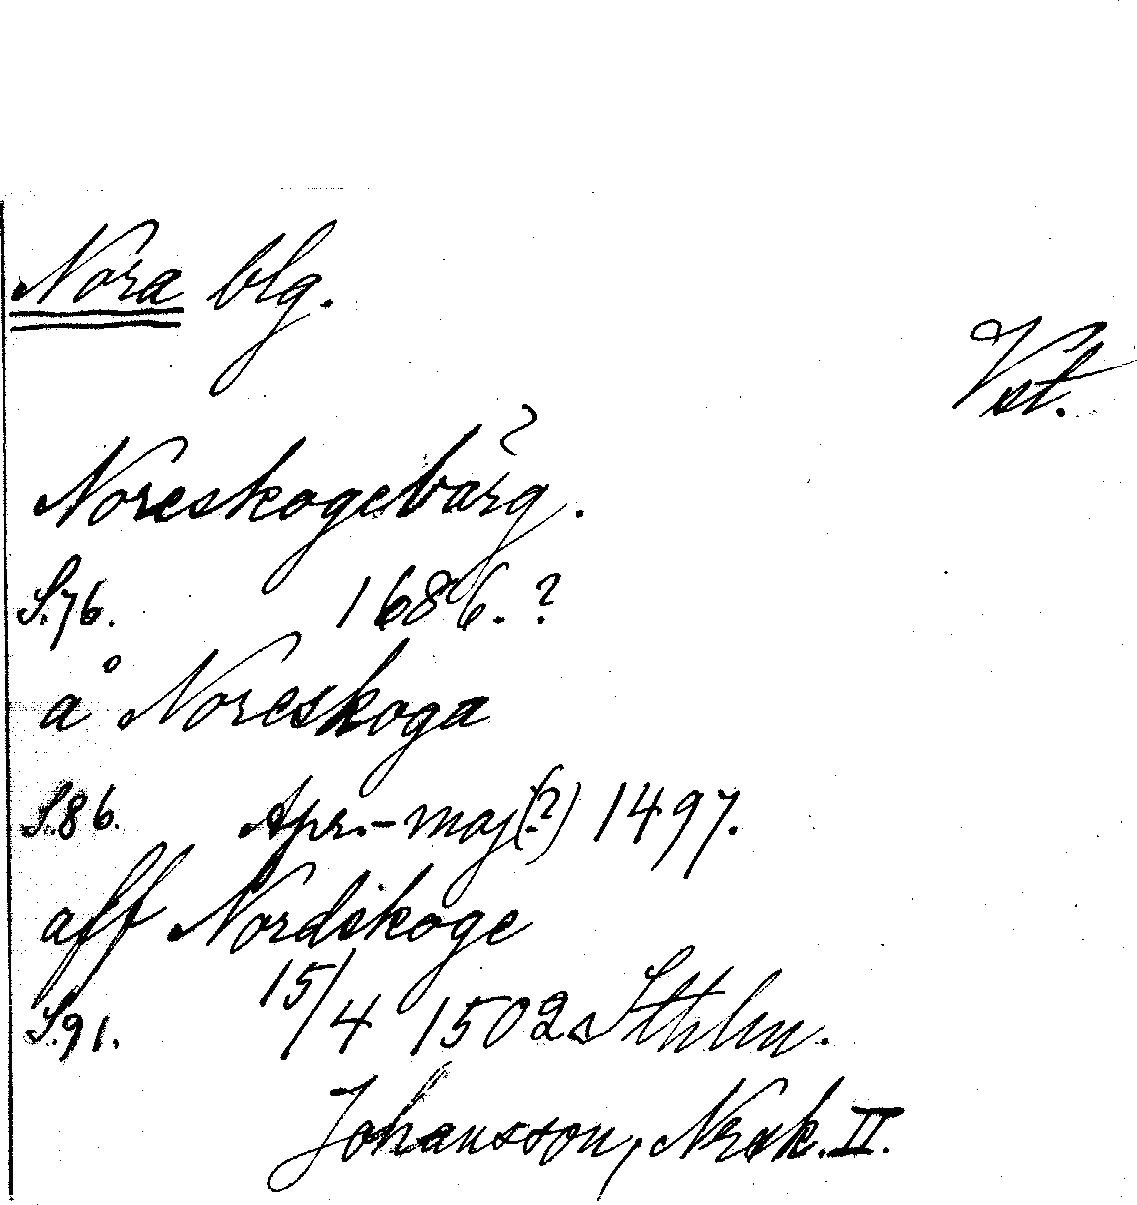 Nora blg.
Vst.
Noreskogebärg.
S.76. 1686.?
å Noreskoga
S.86. Apr.-maj(?) 1497.
aff Nordskoge
S.91. 15/4 1502 Sthlm.
Johansson, Nrsk. II.